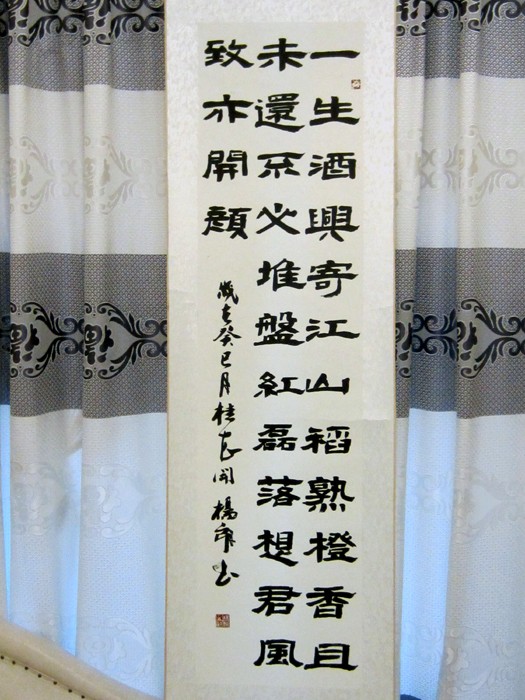 一生酒興寄江山稻熟橙香且
未還不火堆盤紅磊落想君風
致亦開顏
歲在癸巳月桂花開 楊 書